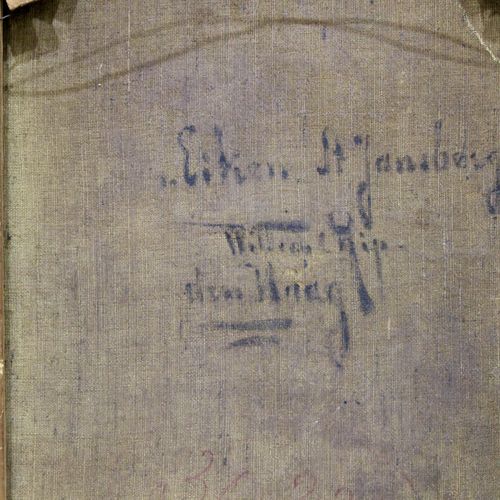 „Eiken St Jansberg
Willem Hip.
den Haag